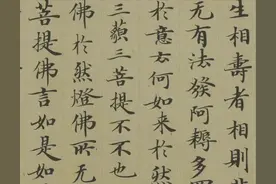 生相壽者相則非
无有法發阿耨多羅
於意云何如来於然
三藐三菩提不不也
佛於然燈佛所无
菩提佛言如是如